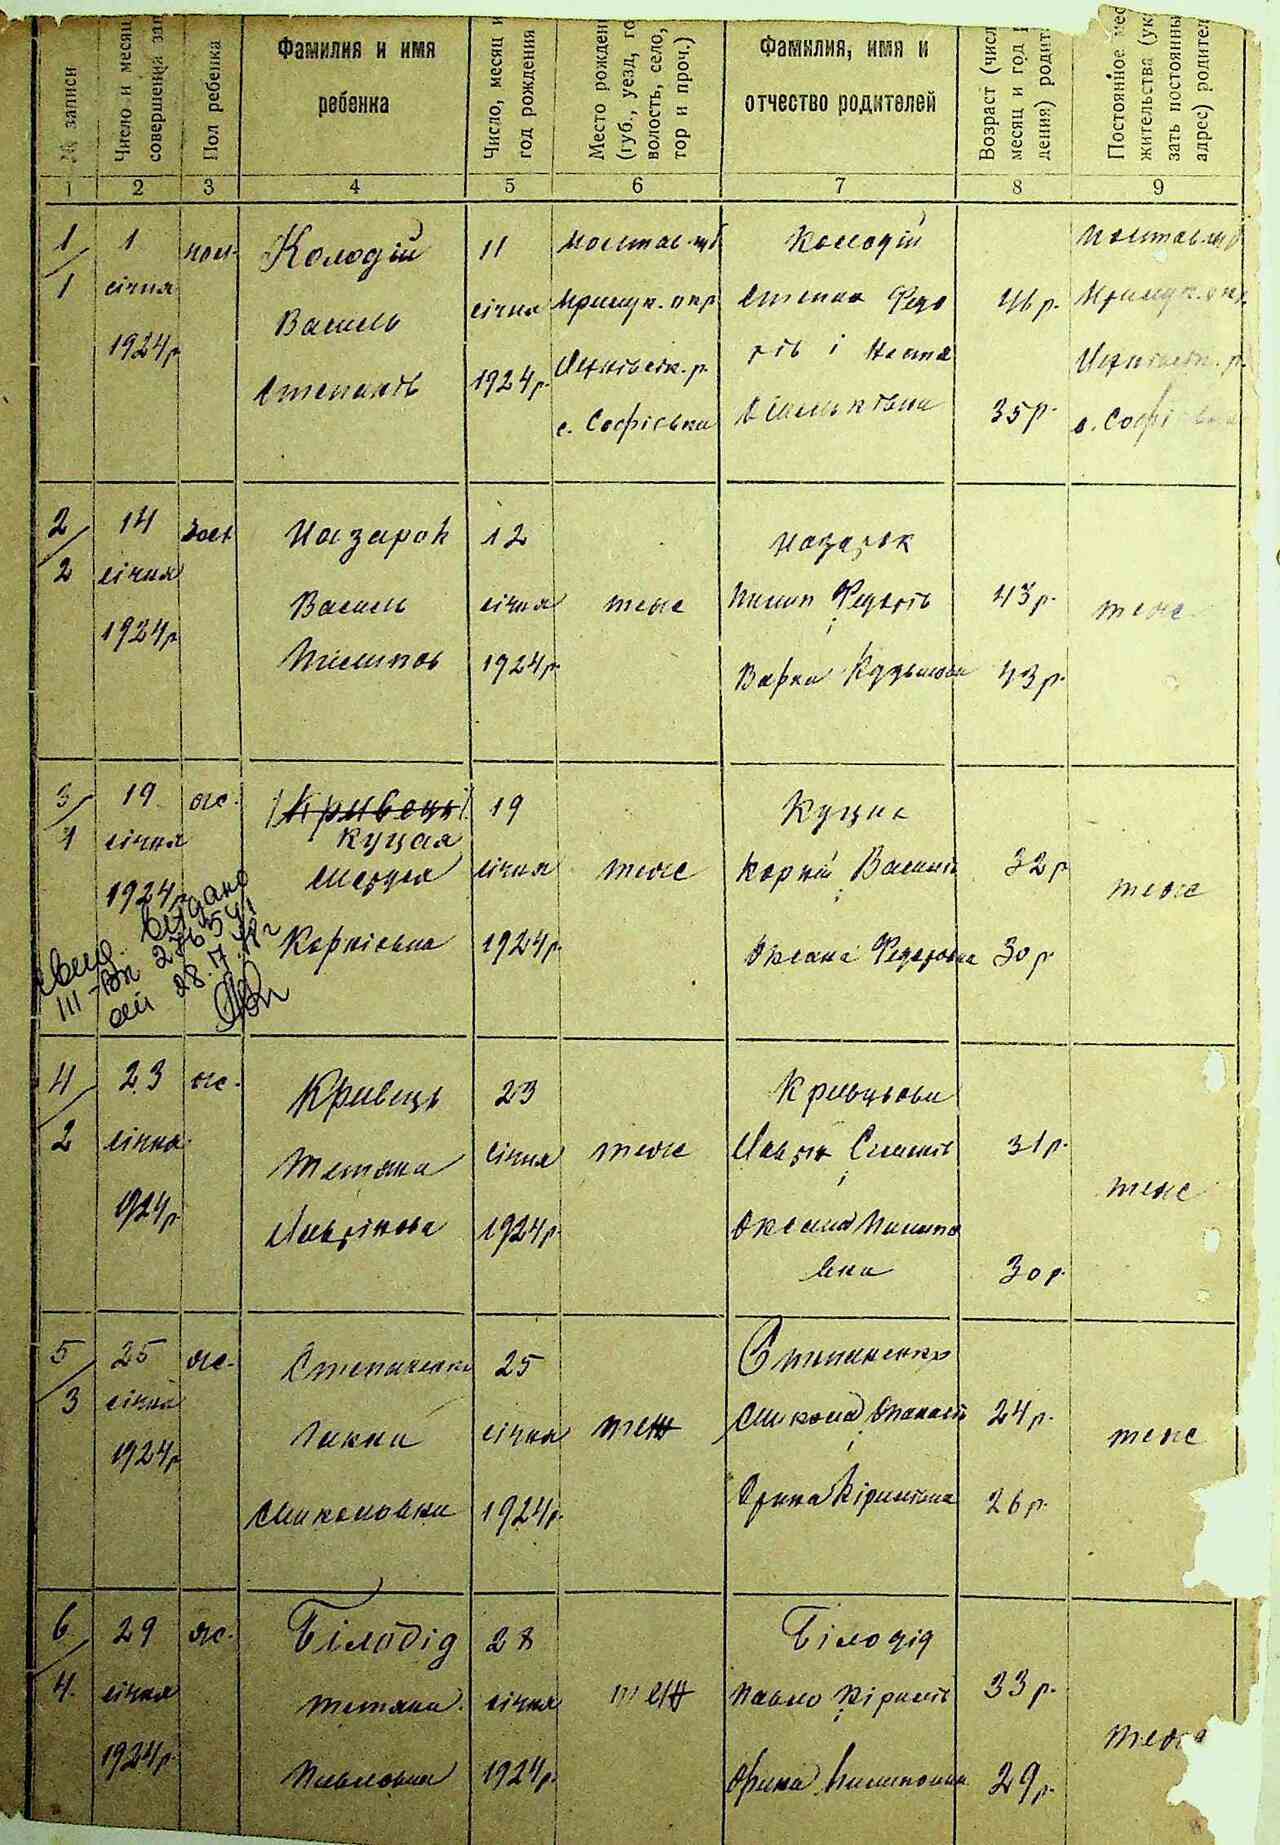 № записи
Число и месяц
совершения зап
Пол ребенка
Фамилия и имя
ребенка
Число, месяц и
год рождения
Место рожден
(губ., уезд, го
волость, село,
тор и проч.)
Фамилия, имя и
отчество родителей
Возраст (чис
месяц и год
дения) родит
Постоянное мес
жительства (ук
зать постоянны
адрес) родител
1 2 3 4 5 6 7 8 9
1/1
1
січня
1924р
Колодій
Василь
Степанів
11
січня
1924р.
Прилук. окр
с. Софіївка
Колодій
Степан Федо
рів і Настя
46 р.
35 р.
Прилук. окр.
с. Софіївка
2/2
14
січня
1924р
Назарок
Василь
Пилипов
12
січня
1924р.
теж
Назарок
Пилип Федорів
і
Варка Кузьмова
43 р.
43 р.
теж
3/1
19
січня
1924р.
ж.
Кривець
Куцая
Мотря
Корніівна
19
січня
1924р.
теж
Корній Василів
і
Оксана Федоровна
32 р
30 р.
теж
свид. выдано
III-ВЛ 276541
28.7.48 г
4/2
23
січня
1924р.
ж.
Кривець
Тетяна
Лаврінова
23
січня
1924р.
теж
Кривцьови
і
Оксана Пилипо
вна
31 р.
30 р.
теж
5/3
25
січня
1924р
ж.
Степаненко
Ганна
Миколовна
25
січня
1924р.
теж
Степаненко
Микола Опанасів
і
24 р.
26 р.
теж
6/4
29
січня
1924р.
ж.
Білодід
Тетяна
Павловна
28
січня
1924р.
теж
Білодід
Павло Кірилів
і
Орина Пилиповна
33 р.
29 р.
теж